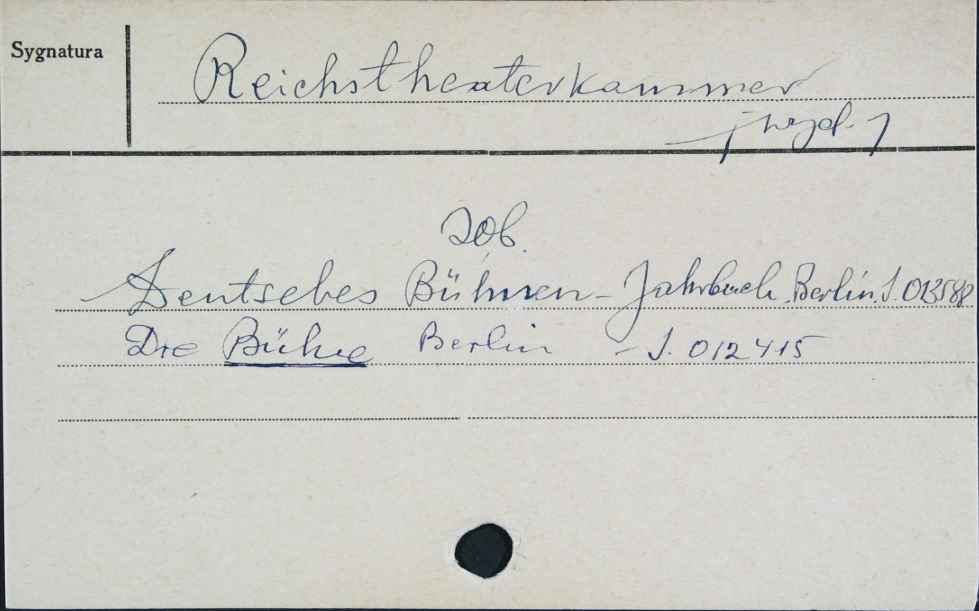 Sygnatura
Reichstheaterkammer
/wyd./
zob.
Deutsches Bühnen-Jahrbuch. Berlin. J. 013588
Die Bühne Berlin - J. 012415